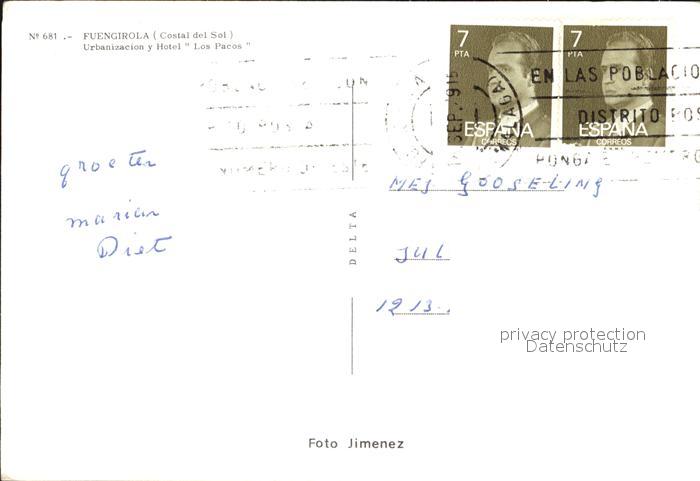 Nº 681 .- FUENGIROLA ( Costal del Sol )
Urbanizacion y Hotel " Los Pacos "
7
PTA
ESPAÑA
CORREOS
7
PTA
ESPAÑA
CORREOS
SEP. 
MALAGA
EN LAS POBLACIO
DISTRITO POS
PONGA
groeten
marian
Diet
DELTA
MEJ GOOSELING
JUL
1213.
privacy protection
Datenschutz
Foto Jimenez